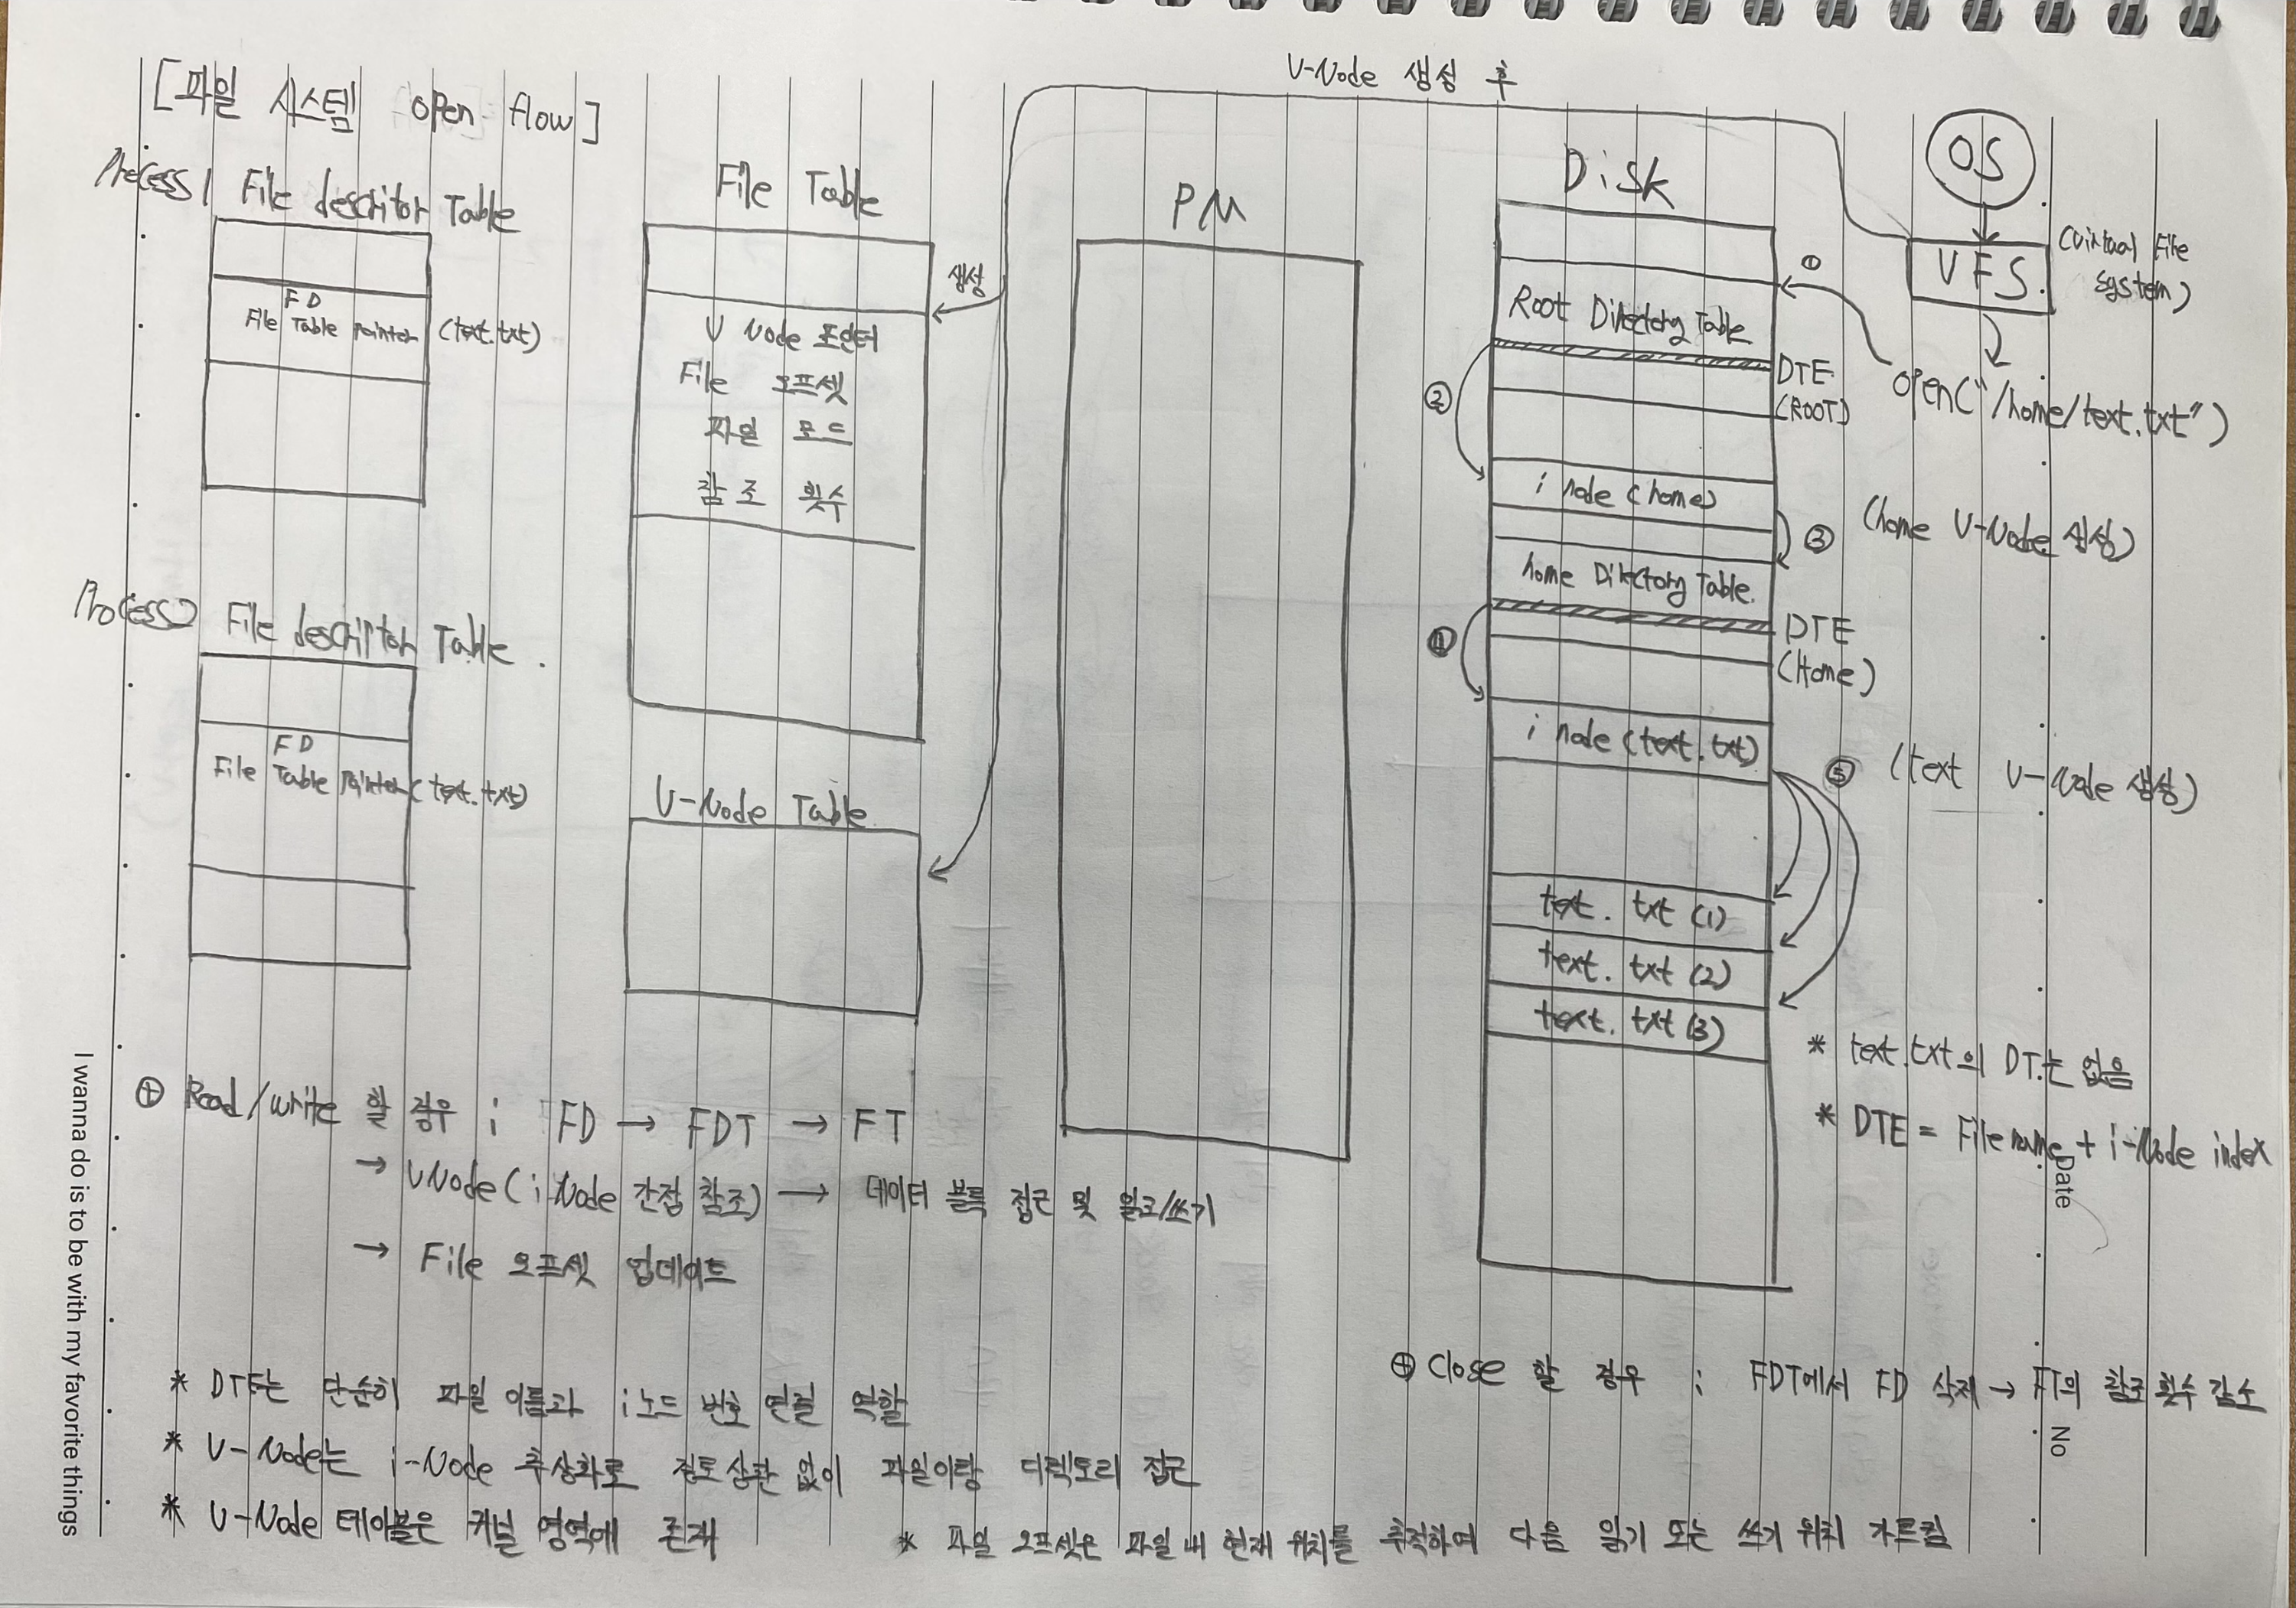 [파일 시스템 open flow]
V-Node 생성 후
Process 1 File descritor Table
FD
File Table pointer (text.txt)
File Table
생성
V Node 포인터
File 오프셋
파일 모드
참조 횟수
PM
Disk
Root Directory Table
DTE
(ROOT)
i node (home)
home Directory Table.
DTE
(Home)
i node (text.txt)
text. txt (1)
text. txt (2)
text. txt (3)
①
②
③
④
⑤
OS
VFS
(Virtual File
system)
open("/home/text.txt")
(home V-Node 생성)
(text V-Node 생성)
* text.txt의 DT는 없음
* DTE = File name + i-Node index
Process 2 File descriptor Table.
FD
File Table pointer (text.txt)
V-Node Table
⊕ Read/write 할 경우 : FD → FDT → FT
→ VNode (i-Node 간접 참조) → 데이터 블록 접근 및 읽고/쓰기
→ File 오프셋 업데이트
⊕ Close 할 경우 : FDT에서 FD 삭제 → FT의 참조 횟수 감소
* DTE는 단순히 파일 이름과 i노드 번호 연결 역할
* V-Node는 i-Node 추상화로 상관 없이 파일이랑 디렉토리 접근
* V-Node 테이블은 커널 영역에 존재
* 파일 오프셋은 파일 내 현재 위치를 추적하여 다음 읽기 또는 쓰기 위치 가르킴
I wanna do is to be with my favorite things
Date
No